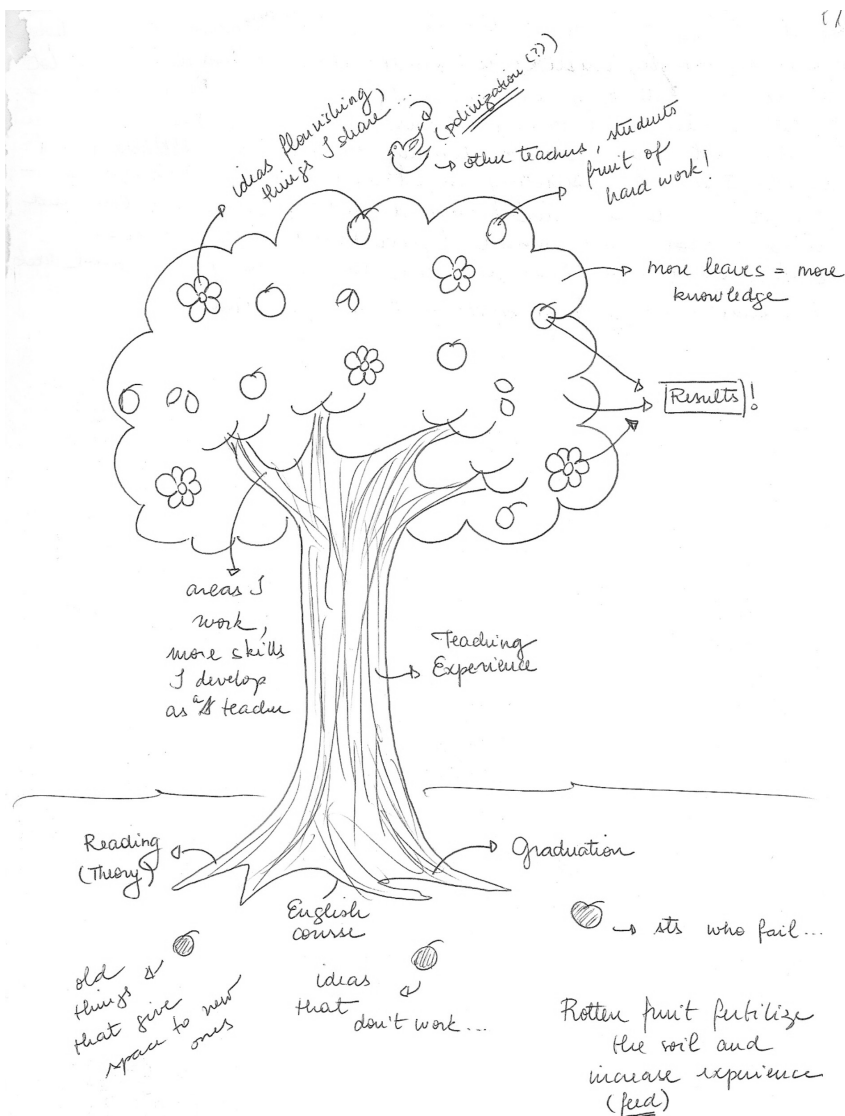 ideas flourishing,
things I share...
(polinization (??)
other teachers, students
fruit of
hard work!
more leaves = more
knowledge
Results!
areas I
work,
more skills
I develop
as a teacher
Teaching
Experience
Reading
(Theory)
Graduation
English
course
sts who fail...
old
things
that give
space to new
ones
ideas
that
don't work...
Rotten fruit fertilize
the soil and
increase experience
(feed)